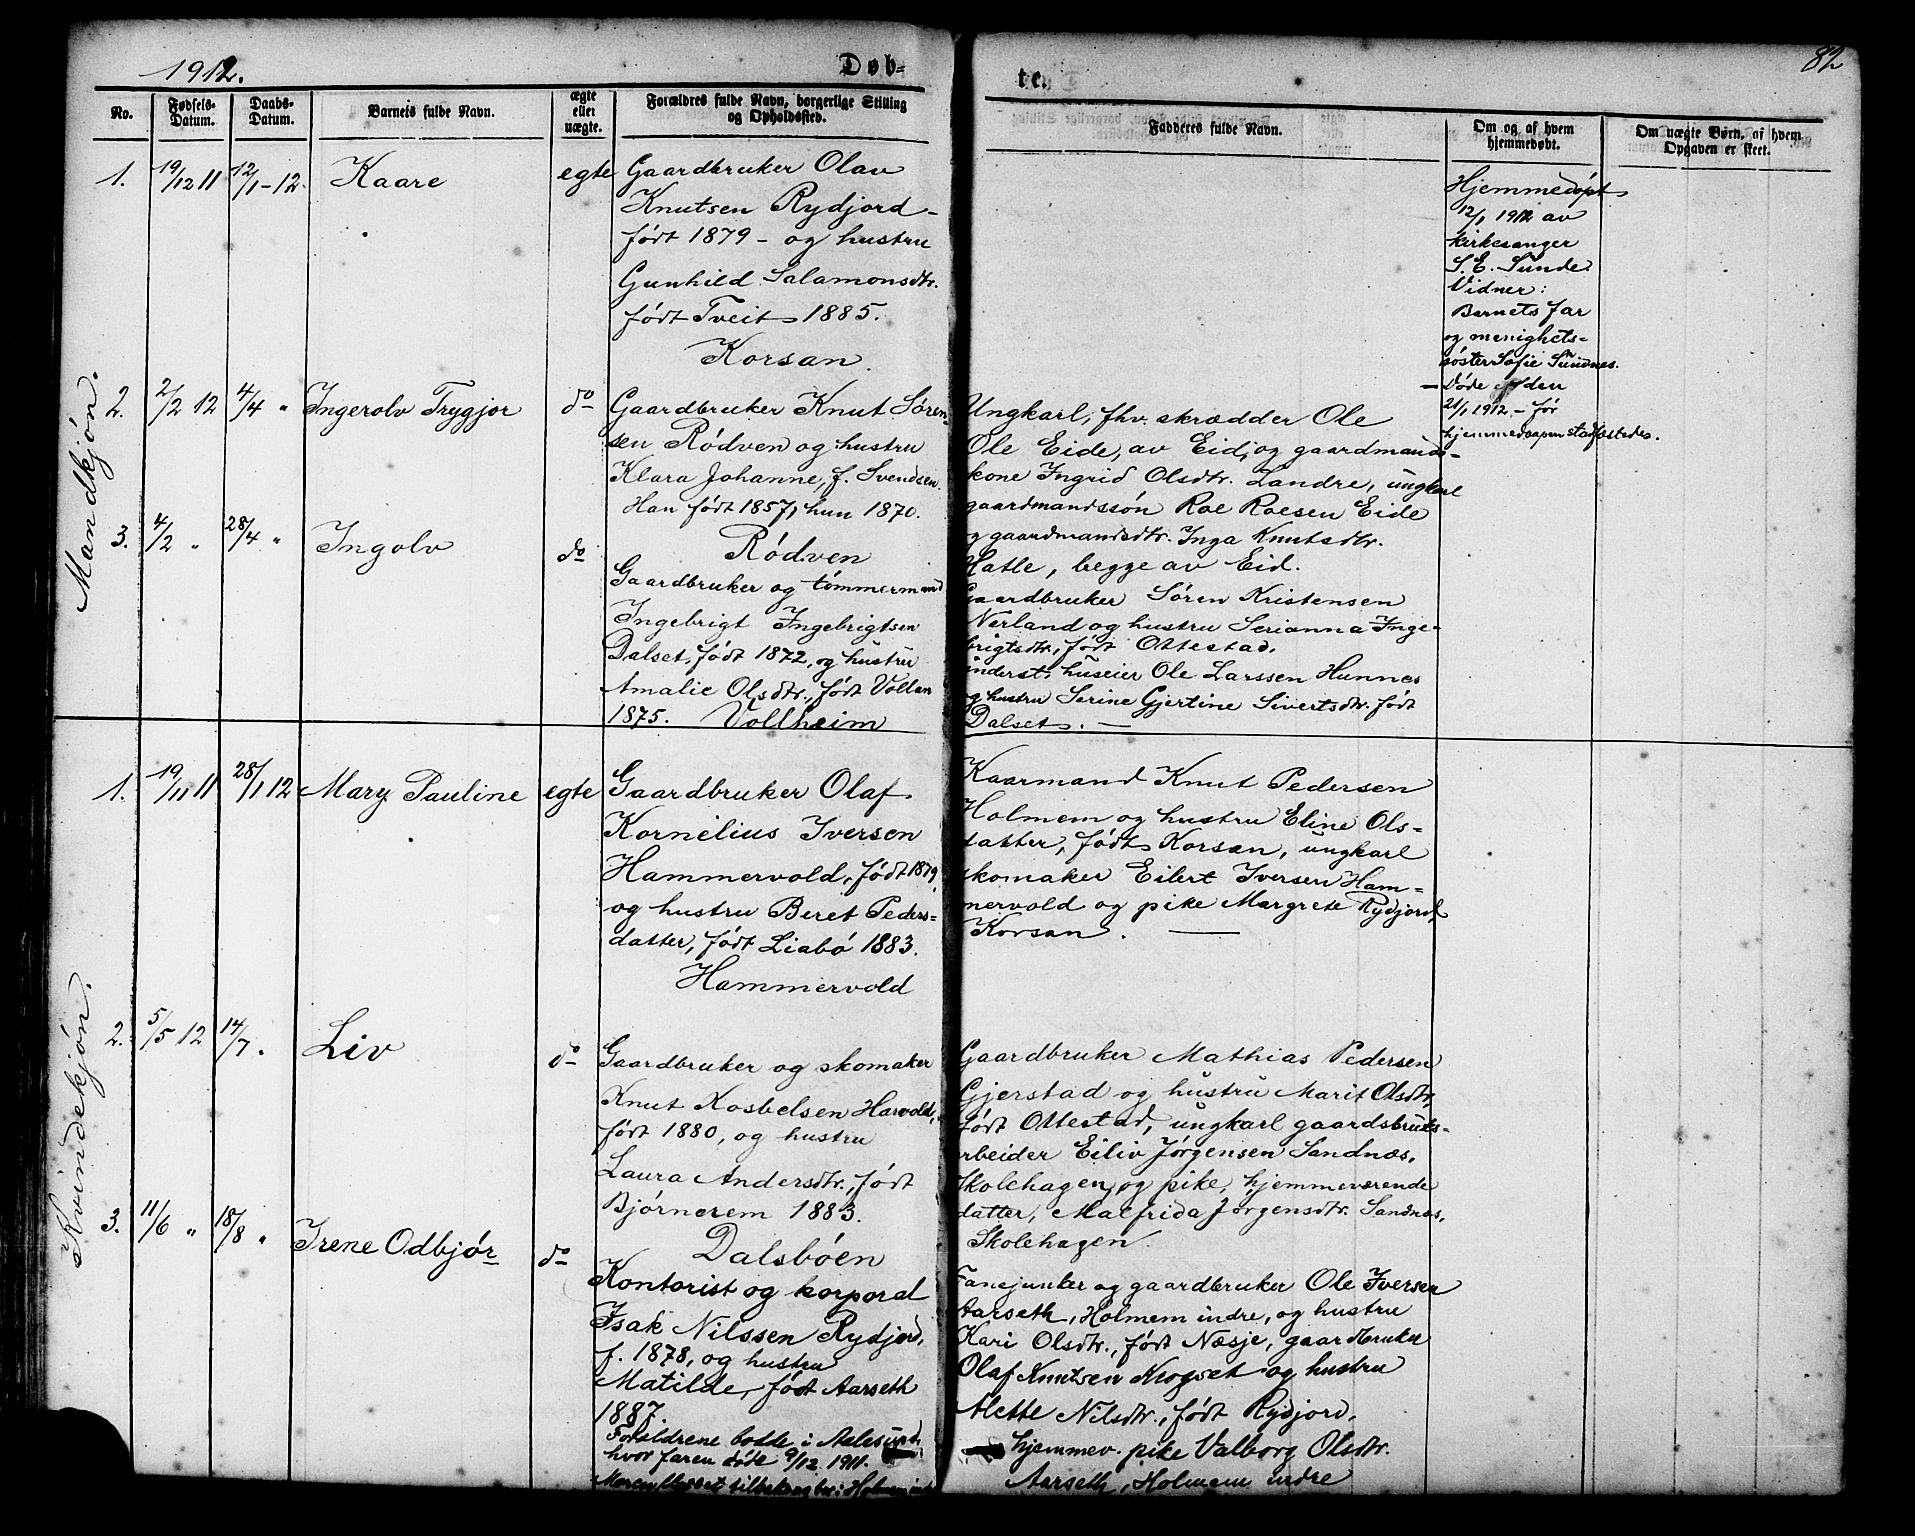 1912.
Døb-
te.
82
No.
Fødsels-
Datum.
Daabs-
Datum.
Barnets fulde Navn.
ægte
eller
uægte.
Forældres fulde Navn, borgerlige Stilling
og Opholdssted.
Fadderes fulde Navn.
Om og af hvem
hjemmedøbt.
Om uægte Børn, af hvem
Opgaven er skeet.
Mandkjøn.
1.
19/12 11
12/1-12
Kaare
egte
Gaardbruker Olav
Knutsen Rydjord -
født 1879 - og hustru
Gunhild Salamonsdtr.
født Tveit 1885.
Korsan.
Hjemmedøpt
12/1 1912 av
kirkesanger
S. E. Sunde.
Vidner:
Barnets far
og menighets-
søster Sofie Sundnes.
- Døde den
21/1 1912. - før
hjemmedaapen stadfæstedes.
2.
2/2 12
4/4 "
Ingerolv Trygjor
do
Gaardbruker Knut Søren-
sen Rødven og hustru
Klara Johanne, f. Svendsen.
Han født 1857, hun 1870.
Rødven
Ungkarl, fhv. skrædder Ole
Ole Eide, av Eid, og gaardmands-
kone Ingrid Olsdtr. Landre, ungkarl
gaardmandssøn Roe Roesen Eide
og gaardmandsdtr. Inga Knutsdtr.
Hatle, begge av Eid.
3.
4/2 "
28/4 "
Ingolv
do
Gaardbruker og tømmermand
Ingebrigt Ingebrigtsen
Dalset, født 1872, og hustru
Amalie Olsdtr., født Vollan
1875. Vollheim
Gaardbruker Søren Kristensen
Nerland og hustru Serianna Inge-
brigtsdtr., født Ottestad.
inderst, huseier Ole Larssen Hunnes
og hustru Serine Gjertine Sivertsdtr. født
Dalset. -
Kvindekjøn.
1.
19/11 11
28/1 12
Mary Pauline
egte
Gaardbruker Olaf
Kornelius Iversen
Hammervold, født 1879,
og hustru Beret Peders-
datter, født Liabø 1883.
Hammervold
Kaarmand Knut Pedersen
Holmem og hustru Eline Ols-
datter, født Korsan, ungkarl
skomaker Eilert Iversen Ham-
mervold og pike Margrete Rydjord,
Korsan. -
2.
5/5 12
14/7 "
Liv
do
Gaardbruker og skomaker
Knut Kosbelsen Harvold,
født 1880, og hustru
Laura Andersdtr., født
Bjørnerem 1883.
Dalsbøen
Gaardbruker Mathias Pedersen
Gjerstad og hustru Marit Olsdtr,
født Ottestad, ungkarl gaardsbruks-
arbeider Eiliv Jørgensen Sandnæs,
Skolehagen, og pike, hjemmeværende
datter, Malfrida Jørgensdtr. Sandnæs,
Skolehagen
3.
11/6 "
18/8 "
Irene Odbjør
do
Kontorist og korporal
Isak Nilssen Rydjord,
f. 1878, og hustru
Matilde, født Aarseth
1887.
Forældrene bodde i Aalesund,
hvor faren døde 9/12 1911.
Moren flyttet tilbake
Fanejunker og gaardbruker Ole Iversen
Aarseth, Holmem indre, og hustru
Kari Olsdtr., født Næsje, gaardbruker
Olaf Knutsen Krogset og hustru
Alette Nilsdtr., født Rydjord,
hjemmev. pike Valborg Olsdtr.
Aarseth, Holmem indre